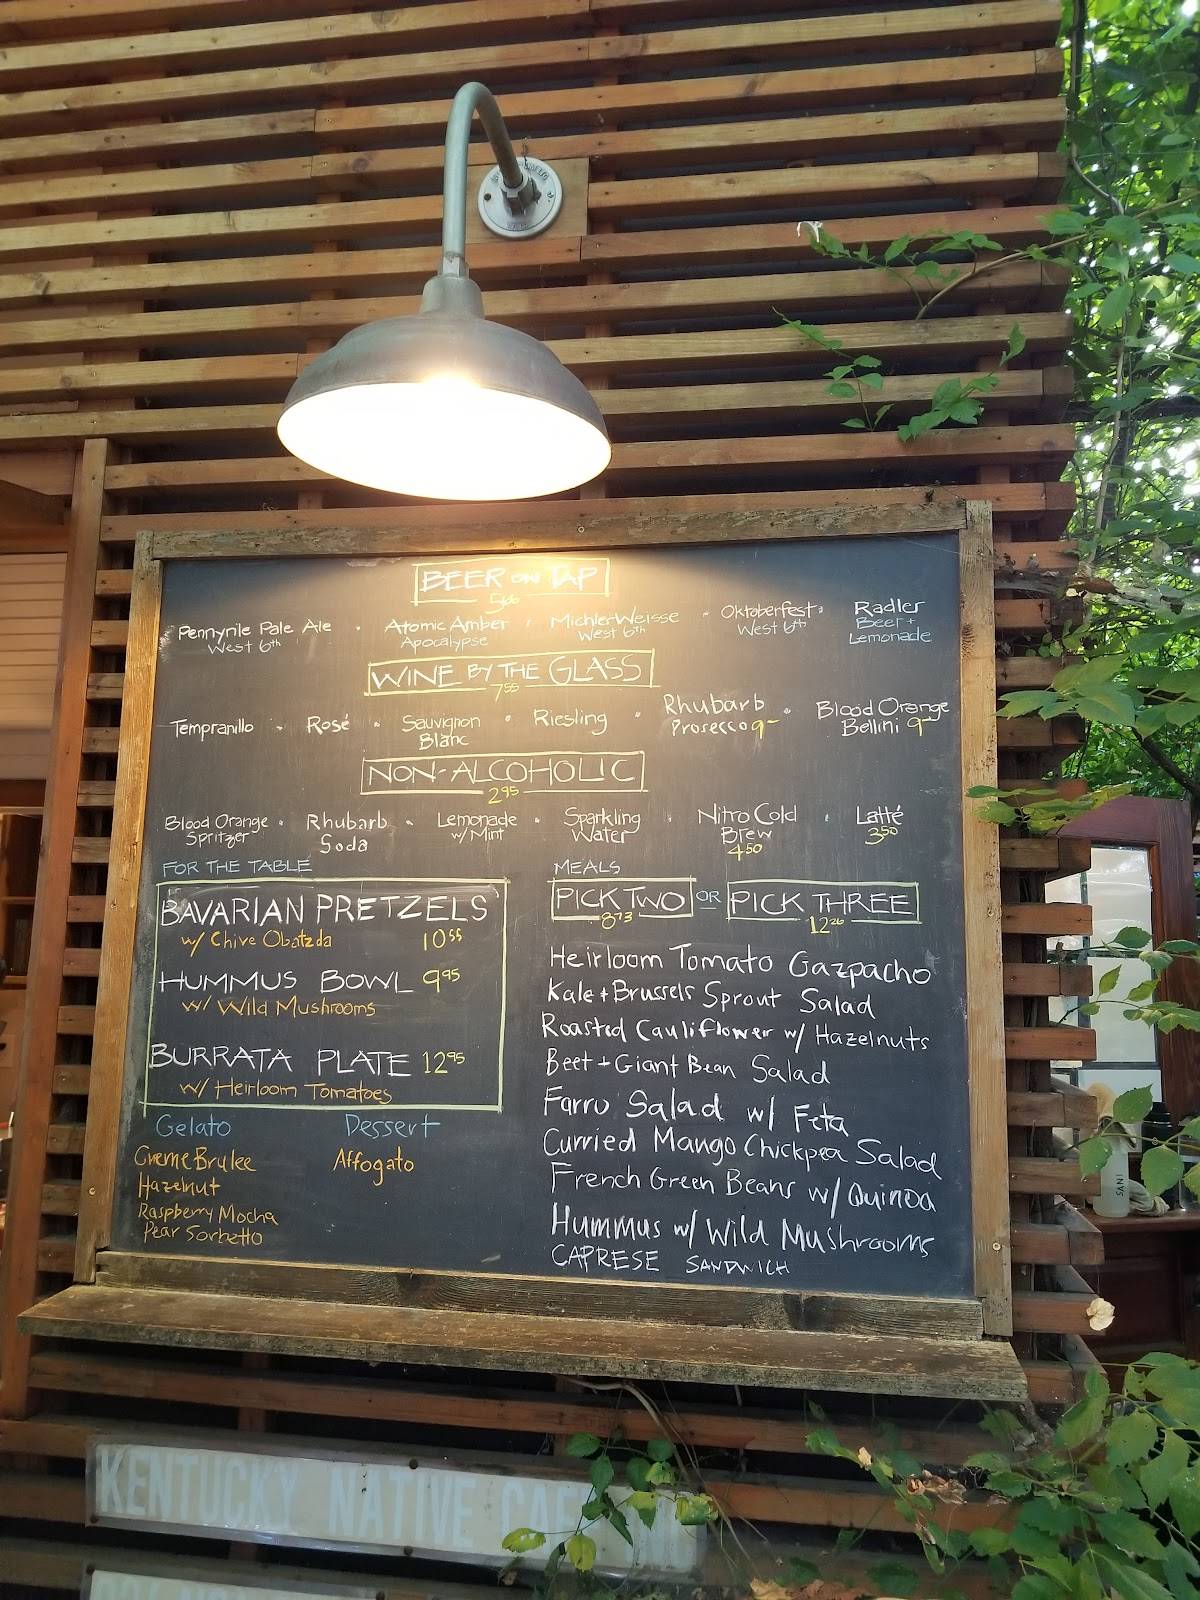 BEER ON TAP
5.00
Pennyrile Pale Ale · Atomic Amber · Michler Weisse · Oktoberfest · Radler
West 6th Apocalypse West 6th West 6th Beer + Lemonade
WINE BY THE GLASS
7.55
Tempranillo · Rosé · Sauvignon Blanc · Riesling · Rhubarb Prosecco 9- · Blood Orange Bellini 9-
NON-ALCOHOLIC
2.95
Blood Orange Spritzer · Rhubarb Soda · Lemonade w/ Mint · Sparkling Water · Nitro Cold Brew 4.50 · Latté 3.50
FOR THE TABLE
BAVARIAN PRETZELS
w/ Chive Obatzda 10.55
HUMMUS BOWL 9.95
w/ Wild Mushrooms
BURRATA PLATE 12.95
w/ Heirloom Tomatoes
Gelato
Creme Brulee
Hazelnut
Raspberry Mocha
Pear Sorbetto
Dessert
Affogato
MEALS
PICK TWO OR PICK THREE
8.73 12.26
Heirloom Tomato Gazpacho
Kale + Brussels Sprout Salad
Roasted Cauliflower w/ Hazelnuts
Beet + Giant Bean Salad
Farro Salad w/ Feta
Curried Mango Chickpea Salad
French Green Beans w/ Quinoa
Hummus w/ Wild Mushrooms
CAPRESE SANDWICH
SANI
KENTUCKY NATIVE CAFE